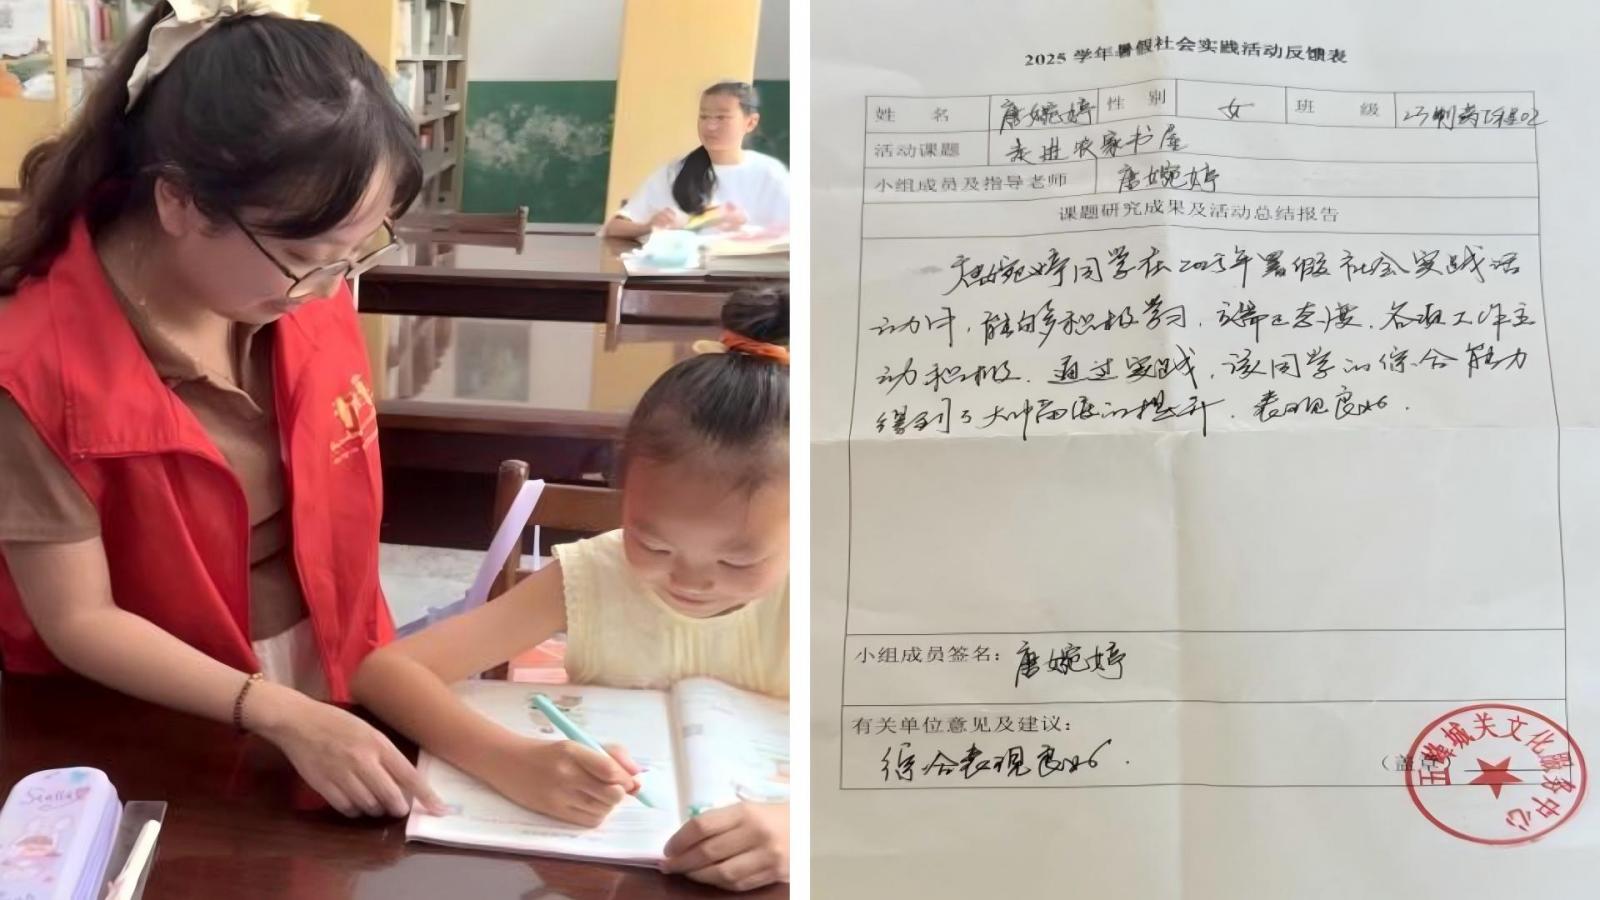 2025 学年暑假社会实践活动反馈表
姓 名 唐婉婷 性 别 女 班 级 23制药工程02
活动课题 走进农家书屋
小组成员及指导老师 唐婉婷
课题研究成果及活动总结报告
唐婉婷同学在2025年暑假社会实践活
动中，能够积极学习，端正态度，各项工作主
动积极。通过实践，该同学的综合能力
得到了大幅度的提升，表现良好。
小组成员签名：唐婉婷
有关单位意见及建议：
综合表现良好。
（盖章
五峰城关文化服务中心